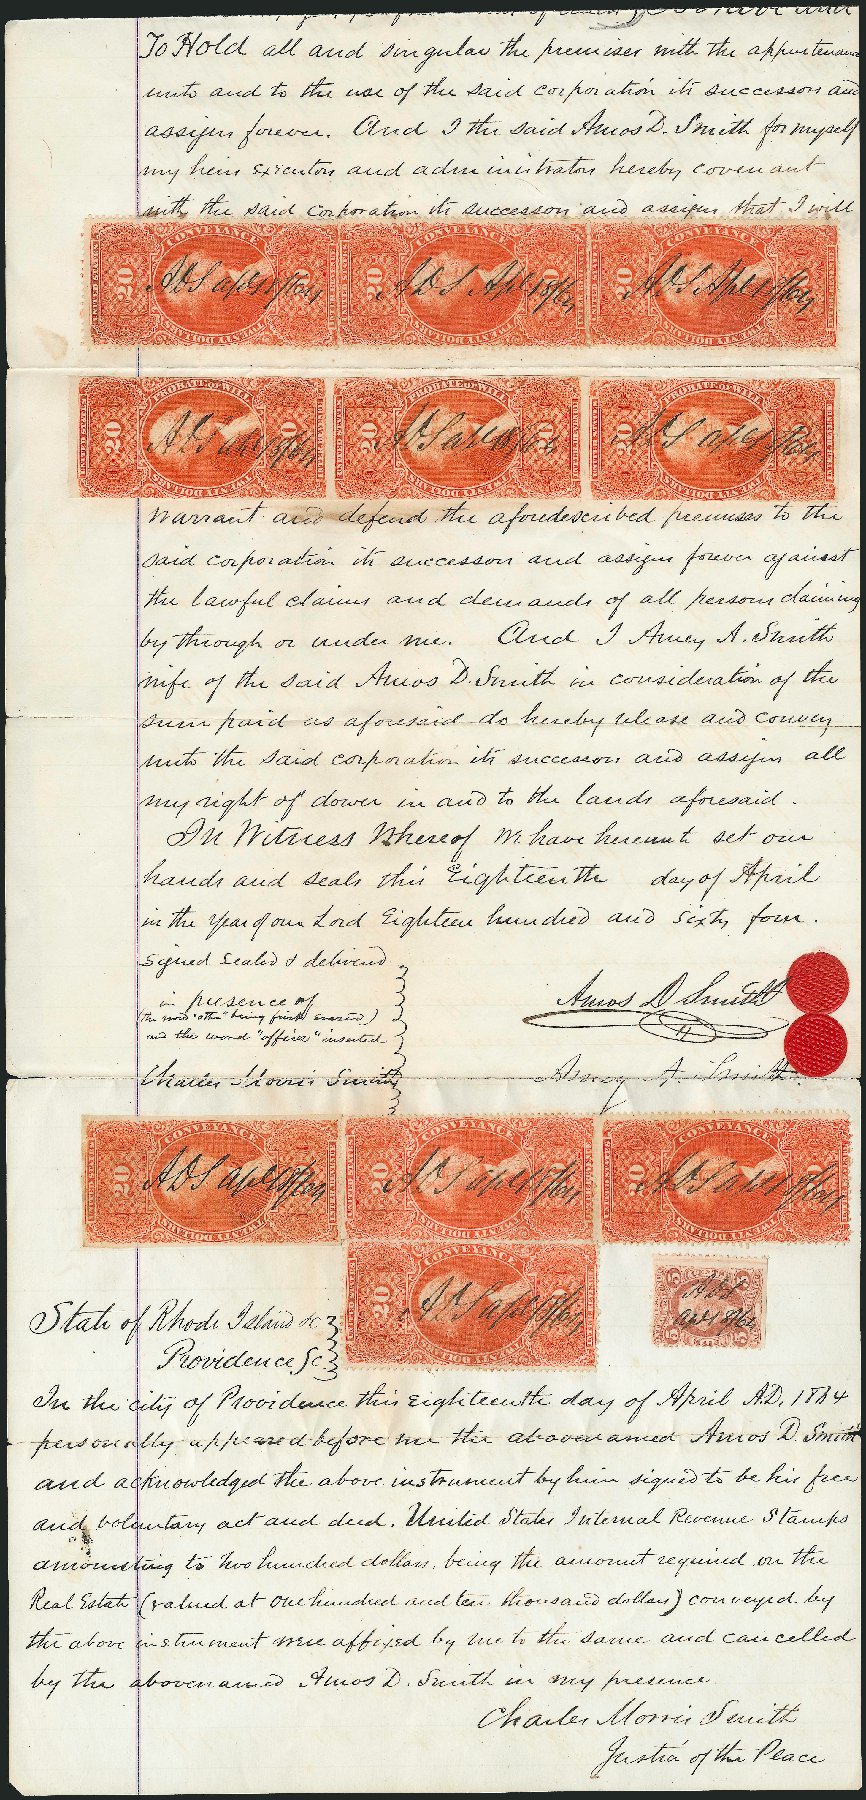 To Hold all and singular the premises with the appurtenances
unto and to the use of the said corporation its successors and
assigns forever. And I the said Amos D. Smith for myself
my heirs executors and administrators hereby covenant
with the said corporation its successors and assigns that I will
CONVEYANCE CONVEYANCE CONVEYANCE
20 20 20
ADS Apl 18/64 ADS Apl 18/64 ADS Apl 18/64
TWENTY DOLLARS TWENTY DOLLARS TWENTY DOLLARS
PROBATE OF WILL PROBATE OF WILL PROBATE OF WILL
20 20 20
ADS apl 18/64 ADS apl 18/64 ADS apl 18/64
TWENTY DOLLARS TWENTY DOLLARS TWENTY DOLLARS
warrant and defend the aforedescribed premises to the
said corporation its successors and assigns forever against
the lawful claims and demands of all persons claiming
by through or under me. And I Amey A. Smith
wife of the said Amos D. Smith in consideration of the
sum paid as aforesaid do hereby release and convey
unto the said corporation its successors and assigns all
my right of dower in and to the lands aforesaid.
In Witness Whereof we have hereunto set our
hands and seals this Eighteenth day of April
in the Year of our Lord Eighteen hundred and sixty four.
Signed Sealed & delivered
in presence of
(the word "other" being first erased)
and the word "officer" inserted
Amos D Smith
Charles Morris Smith
Amey A. Smith
CONVEYANCE CONVEYANCE CONVEYANCE
20 20 20
ADS apl 18/64 ADS apl 18/64 ADS apl 18/64
TWENTY DOLLARS TWENTY DOLLARS TWENTY DOLLARS
CONVEYANCE
20
ADS apl 18/64
TWENTY DOLLARS
ADS
apl 18/64
State of Rhode Island &c
Providence Sc
In the city of Providence this eighteenth day of April A.D. 1864
personally appeared before me the abovenamed Amos D. Smith
and acknowledged the above instrument by him signed to be his free
and voluntary act and deed. United States Internal Revenue Stamps
amounting to two hundred dollars, being the amount required on the
Real Estate (valued at one hundred and ten thousand dollars) conveyed by
the above instrument were affixed by me to the same and cancelled
by the abovenamed Amos D. Smith in my presence
Charles Morris Smith
Justice of the Peace